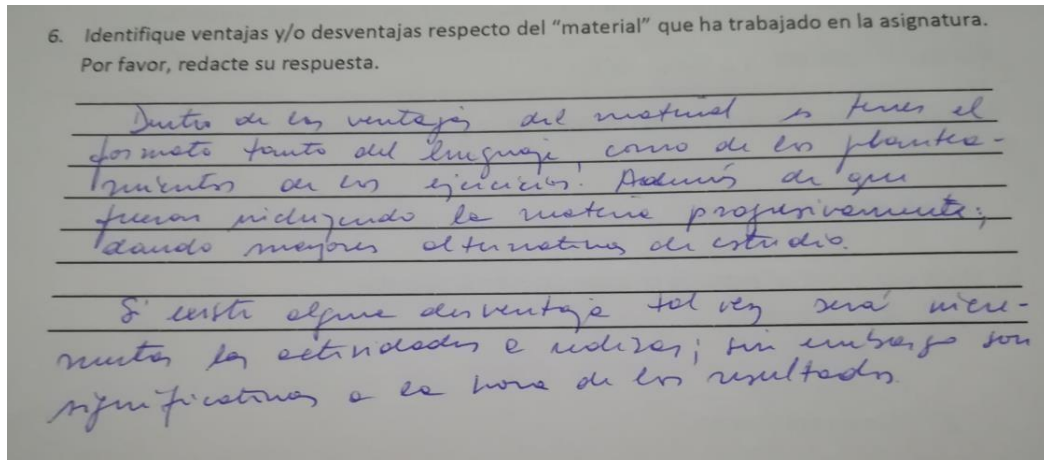 6. Identifique ventajas y/o desventajas respecto del “material” que ha trabajado en la asignatura.
Por favor, redacte su respuesta.
Dentro de las ventajas del material es tener el
formato tanto del lenguaje, como de los plantea-
mientos de los ejercicios. Además de que
fueron incluyendo la materia progresivamente;
dando mayores alternativas de estudio.
Si existe alguna desventaja tal vez será incre-
mentar las actividades a realizar; sin embargo son
significativas a la hora de los resultados.